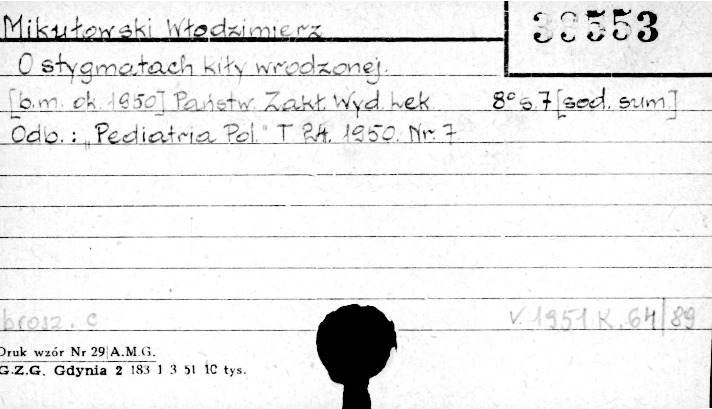 Mikułowski Włodzimierz
38553
O stygmatach kiły wrodzonej.
[b.m. ok. 1950] Państw. Zakł. Wyd. Lek. 8° s. 7 [sod. sum.]
Odb.: „Pediatria Pol." T 24. 1950. Nr. 7
brosz. c V. 1951 K. 64/89
Druk wzór Nr 29 A.M.G.
G.Z.G. Gdynia 2 183 1 3 51 10 tys.